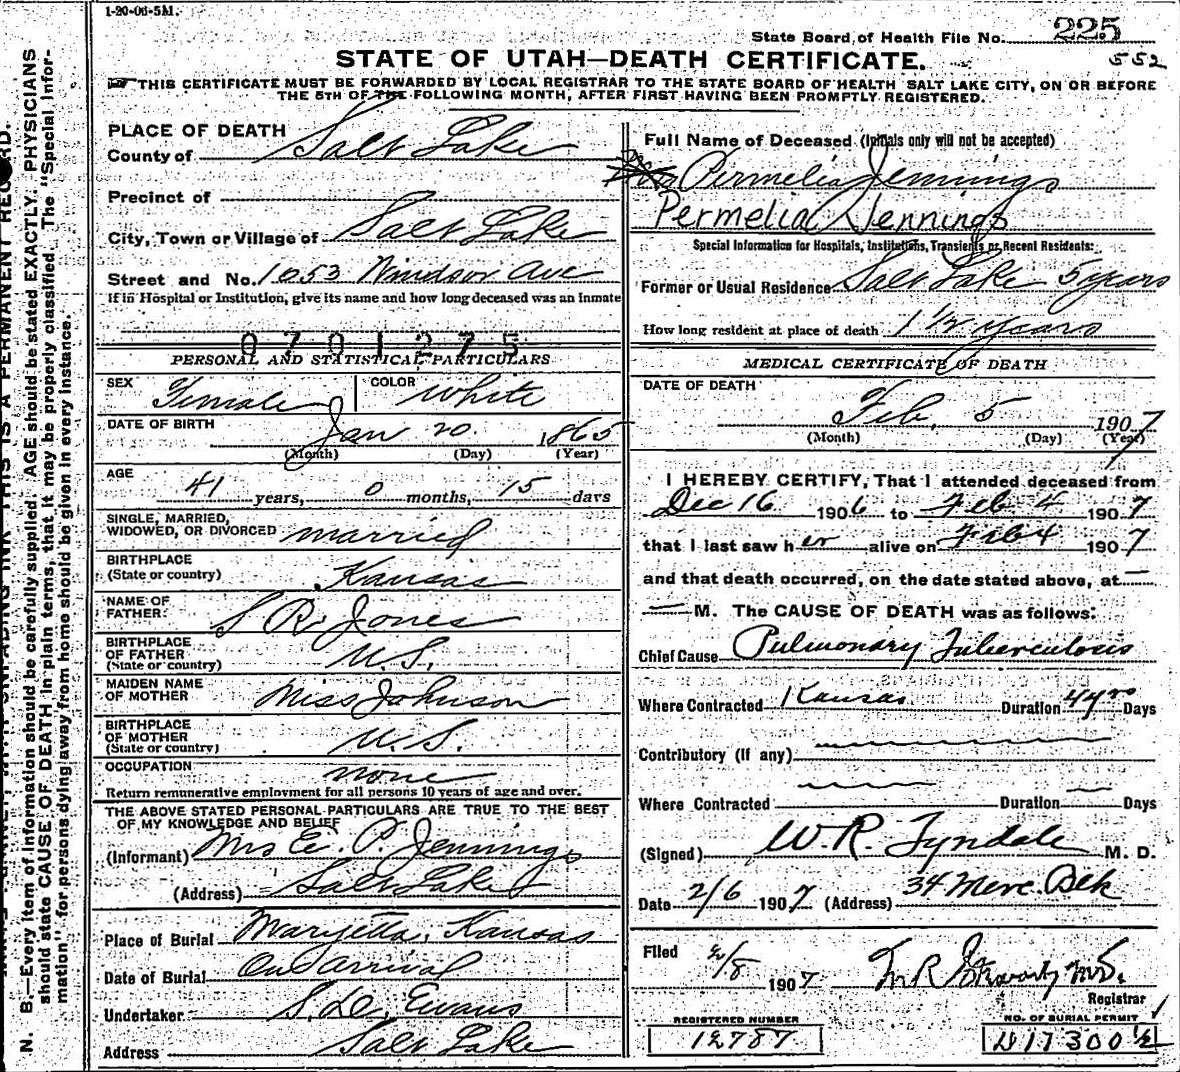 1-20-06-5M.
State Board of Health File No. 225
552
STATE OF UTAH—DEATH CERTIFICATE.
THIS CERTIFICATE MUST BE FORWARDED BY LOCAL REGISTRAR TO THE STATE BOARD OF HEALTH SALT LAKE CITY, ON OR BEFORE
THE 5TH OF THE FOLLOWING MONTH, AFTER FIRST HAVING BEEN PROMPTLY REGISTERED.
PLACE OF DEATH
County of Salt Lake
Precinct of
City, Town or Village of Salt Lake
Street and No. 1653 Windsor Ave
If in Hospital or Institution, give its name and how long deceased was an inmate
0701275
PERSONAL AND STATISTICAL PARTICULARS
SEX Female COLOR White
DATE OF BIRTH Jan 20 1865
(Month) (Day) (Year)
AGE 41 years, 0 months, 15 days
SINGLE, MARRIED,
WIDOWED, OR DIVORCED married
BIRTHPLACE
(State or country) Kansas
NAME OF
FATHER: S R. Jones
BIRTHPLACE
OF FATHER
(State or country) U.S.
MAIDEN NAME
OF MOTHER Miss Johnson
BIRTHPLACE
OF MOTHER
(State or country) U.S.
OCCUPATION none
Return remunerative employment for all persons 10 years of age and over.
THE ABOVE STATED PERSONAL PARTICULARS ARE TRUE TO THE BEST
OF MY KNOWLEDGE AND BELIEF
(Informant) Mrs E. P. Jennings
(Address) Salt Lake
Place of Burial Maryetta, Kansas
Date of Burial On arrival
Undertaker S. D. Evans
Address Salt Lake
Full Name of Deceased (Initials only will not be accepted)
Permelia Jennings
Permelia Jennings
Special Information for Hospitals, Institutions, Transients or Recent Residents:
Former or Usual Residence Salt Lake 5 years
How long resident at place of death 1 1/2 years
MEDICAL CERTIFICATE OF DEATH
DATE OF DEATH
Feb. 5 1907
(Month) (Day) (Year)
I HEREBY CERTIFY, That I attended deceased from
Dec 16 1906 to Feb 4 1907
that I last saw her alive on Feb 4 1907
and that death occurred, on the date stated above, at —
— M. The CAUSE OF DEATH was as follows:
Chief Cause Pulmonary Tuberculosis
Where Contracted Kansas Duration 4 yrs Days
Contributory (if any)
Where Contracted Duration — Days
(Signed) W. R. Tyndale M. D.
Date 2/6 1907 (Address) 34 Merc. Blk
Filed 2/8 1907
Registrar
REGISTERED NUMBER
12787
NO. OF BURIAL PERMIT
D 17300 1/2
N. B.—Every item of information should be carefully supplied. AGE should be stated EXACTLY. PHYSICIANS
should state CAUSE OF DEATH in plain terms, that it may be properly classified. The "Special Infor-
mation" for persons dying away from home should be given in every instance.